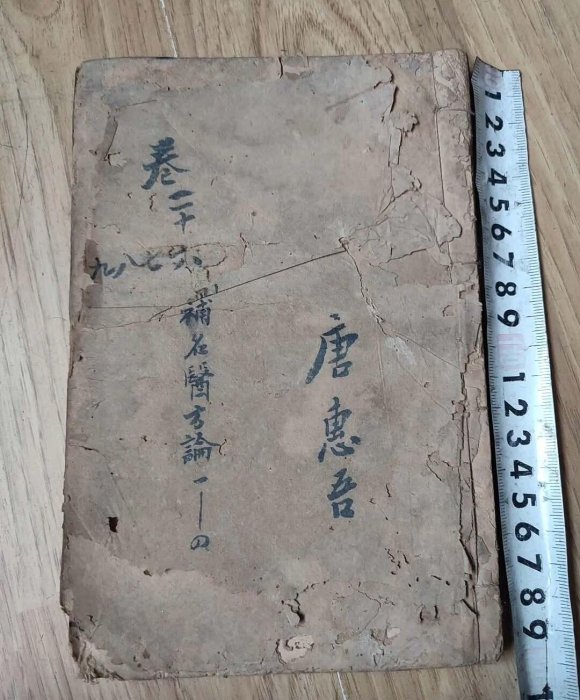 唐惠吾
補名醫方論一—四
卷二十
六七八九
1 2 3 4 5 6 7 8 9 1 2 3 4 5 6 7 8 9